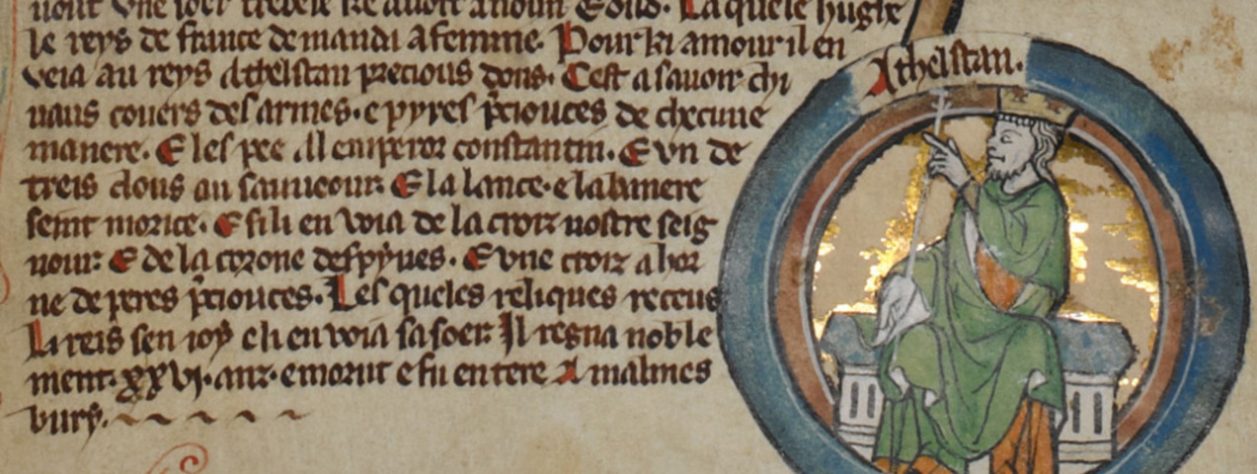 uout vne soer trebele ke auoit anoun Eoild. La quele hughe
le reys de france demanda a femme. Pour ki amour il en
veia au reys Athelstan precious dons. Cest a sauoir chi
uaus couers des armes. e pyres p̃ciouces de checune
manere. E les pee Al emperor constantin. E vn de
treis clous au sauueour. E la lance. e la banere
seint morice. E si li en voia de la croiz nostre seig
nour. E de la corone despynes. E vne croiz a hor
ne de peres p̃ciouces. Les queles reliques receus
Li reis sen ioy e li en voia sa soer. Il regna noble
ment. xxvj. anz. e morut e fu entere A malmes
bury.
Athelstan.